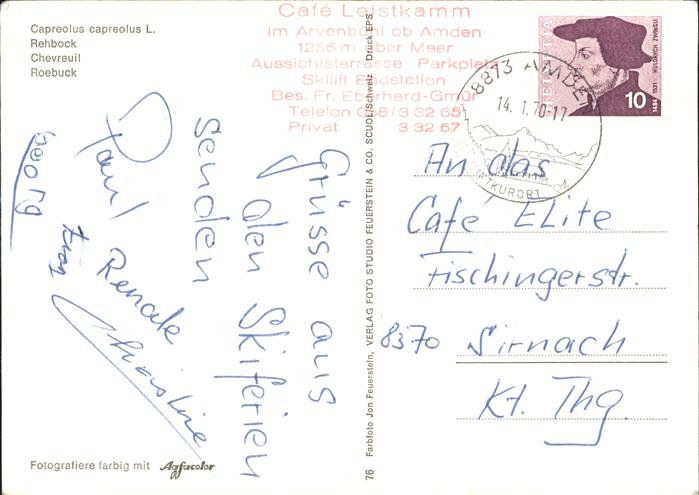 Capreolus capreolus L.
Rehbock
Chevreuil
Roebuck
Café Leistkamm
im Arvenbühl ob Amden
1256 m über Meer
Aussichtsterrasse Parkplatz
Skilift Endstation
Bes. Fr. Eberhard-Gmür
Telefon 058/3 32 65
Privat 3 32 67
HELVETIA
HULDRYCH ZWINGLI
1484 1531
10
8873 AMDEN
14.1.70-17
LUFTKURORT
Grüsse aus
den Skiferien
senden
Paul Renate
Christine
Georg
An das
Café ELite
Fischingerstr.
8370 Sirnach
Kt. Thg.
76 Farbfoto Jon Feuerstein, VERLAG FOTO STUDIO FEUERSTEIN & CO. SCUOL/Schweiz Druck EPS
Fotografiere farbig mit Agfacolor